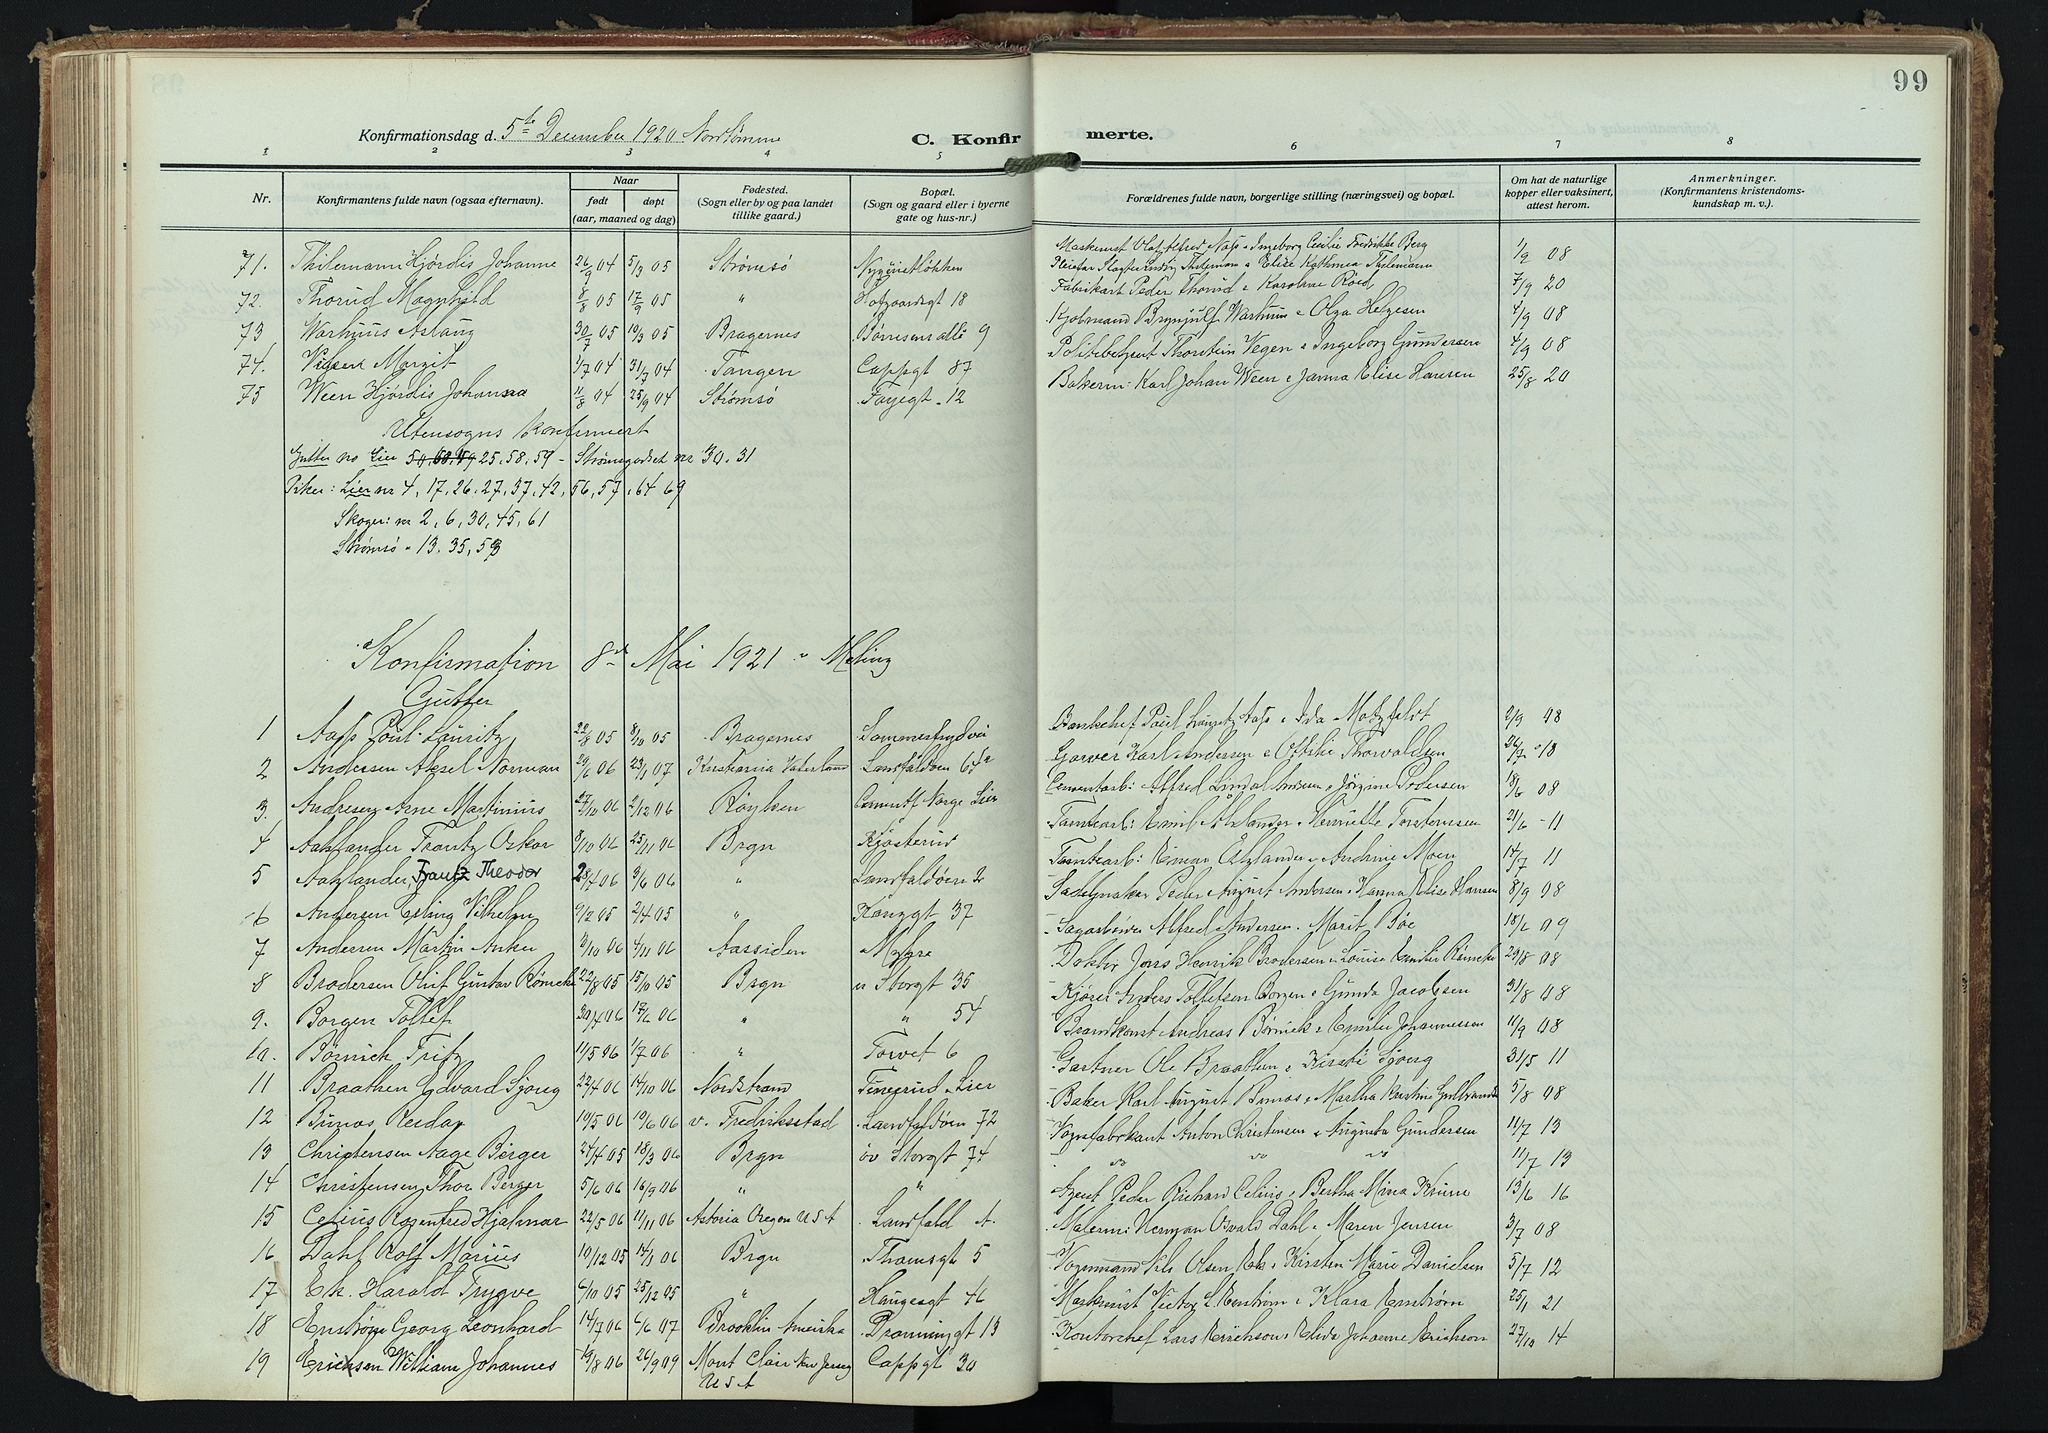 99
Konfirmationsdag d. 5te December 1920 Nordtømme C. Konfirmerte.
1 2 3 4 5 6 7 8
Nr. Konfirmantens fulde navn (ogsaa efternavn). Naar født døpt (aar, maaned og dag) Fødested. (Sogn eller by og paa landet tillike gaard.) Bopæl. (Sogn og gaard eller i byerne gate og hus-nr.) Forældrenes fulde navn, borgerlige stilling (næringsvei) og bopæl. Om hat de naturlige kopper eller vaksinert, attest herom. Anmerkninger. (Konfirmantens kristendoms-kundskap m. v.).
Maskinist Olaf Alfred Næss Ingeborg Cecilie Fredrikke Berg 1/9 08
71. Thilemann Hjørdis Johanne 26/9 04 5/3 05 Strømsø Thilemann Elise Thilemann
72. Thorud Magnhild 8/8 05 17/9 05 " 18 Fabrikarb Peder Thorud Karoline Röed 7/9 20
73 Warhuus Aslaug 30/7 05 19/3 05 Bragernes Børresens allé 9 Kjøbmand Brynjulf Warhuus Olga Helgesen 4/9 08
74. Margit 1/7 04 31/7 04 Tangen Cappgt 87 Politibetjent Thorstein Vegen Ingeborg Gundersen 4/9 08
75 Ween Hjördis Johanna 11/8 04 25/9 04 Strømsø Fayegt. 12 Bakerm: Karl Johan Ween Janna Elise Hansen 25/8 20
Utensogns konfirmert
Gutter no Lier 25, 58, 59 - Strømsgodset nr 30. 31
Piker: Lier nr 4, 17, 26. 27, 37, 42, 56, 57, 64 69
Skoger: nr 2, 6, 30, 45, 61
Strømsø " 13. 35, 53
Konfirmation 8de Mai 1921 v Meling
Gutter
1 Aass Poul Lauritz 22/8 05 8/10 05 Bragernes Sommerfrydvei Bankchef Paul Lauritz Aass Ida Motzfeldt 2/9 08
2 Andersen Aksel Norman 29/6 06 23/1 07 Kristiania Vaterland Landfaldøen 65a Garver Karl Andersen Ottilie Thorvaldsen 26/7 18
3. Andresen Arne Martinius 27/10 06 2/12 06 Røyken Cementf Norge Lier Cementarb: Alfred Lindal Andresen Jörgine Pedersen 18/6 08
4 Aahlander Frantz Oskar 8/10 06 25/11 06 Brgn Kjøsterud Tomtearb: Emil Åhlander Henriette Torstensen 21/6 - 11
5 Aahlander, Frantz Theodor 28/4 06 3/6 06 " Landfaldøen 2 Tomtearb: Einar Åhlander Andrine Moen 14/7 11
6 Andersen Erling Vilhelm 9/2 05 2/4 05 " Kongsgt 37 Sadelmaker Peder August Andersen Hanna Elise Hansen 8/9 08
7 Andersen Martin Anker 3/10 06 4/11 06 Aassiden Myhre Sagarbeider Alfred Andersen. Marit Bøe 18/6 09
8 Brodersen Oluf Gustav Römcke 22/8 05 15/10 05 Brgn n Storgt 35 Doktor Jens Henrik Brodersen Louise Emilie Römcke 29/8 08
9. Borgen Tollef 20/4 06 17/6 06 " " 54 Kjører Anders Tollefsen Borgen Gunda Jacobsen 31/8 08
10. Børnich Fritz 11/5 06 1/7 06 " Torvet 6 Brandkonst Andreas Børnich Emilie Johannessen 11/9 08
11 Braathen Edvard Sjong 22/4 06 14/10 06 Nordstrand Lier Gartner Ole Braathen Kirsti Sjong 31/5 11
12 Bunæs Reidar 10/5 06 10/6 06 v. Fredriksstad Landfaldøen 72 Baker Karl August Bunæs Martha Kristine 5/8 08
13 Christensen Aage Berger 24/4 05 18/3 06 Brgn øv Storgt 74 Vognfabrikant Anton Christensen Augusta Gundersen 11/7 13
14 Christensen Thor Berger 5/6 06 16/9 06 " " " " " 11/7 13
15 Celius Rosenfred Hjalmar 22/5 06 11/11 06 Astoria Oregon U S A Landfald A. Agent Peder Richard Celius Bertha Mina 13/6 16
16 Dahl Rolf Marius 10/12 05 14/1 06 Brgn Thamsgt 5 Malerm: Herman Osvald Dahl Maren Jensen 3/7 08
17 Ek. Harald Trygve 6/10 05 25/12 05 " Haugesgt 46 Vognmand Nils Olsen Ek Kirsten Marie Danielsen 5/7 12
18 Enström Georg Leonhard 14/7 06 6/6 07 Brooklin Amerika Dronningt 13 Maskinist Victor L Enström Klara Enström 25/1 21
19 Erichsen William Johannes 19/8 06 26/9 09 Mont Clair New Jersey U S A Cappgt 30 Kontorchef Lars Erichson Elida Johanne Erichson 27/10 14